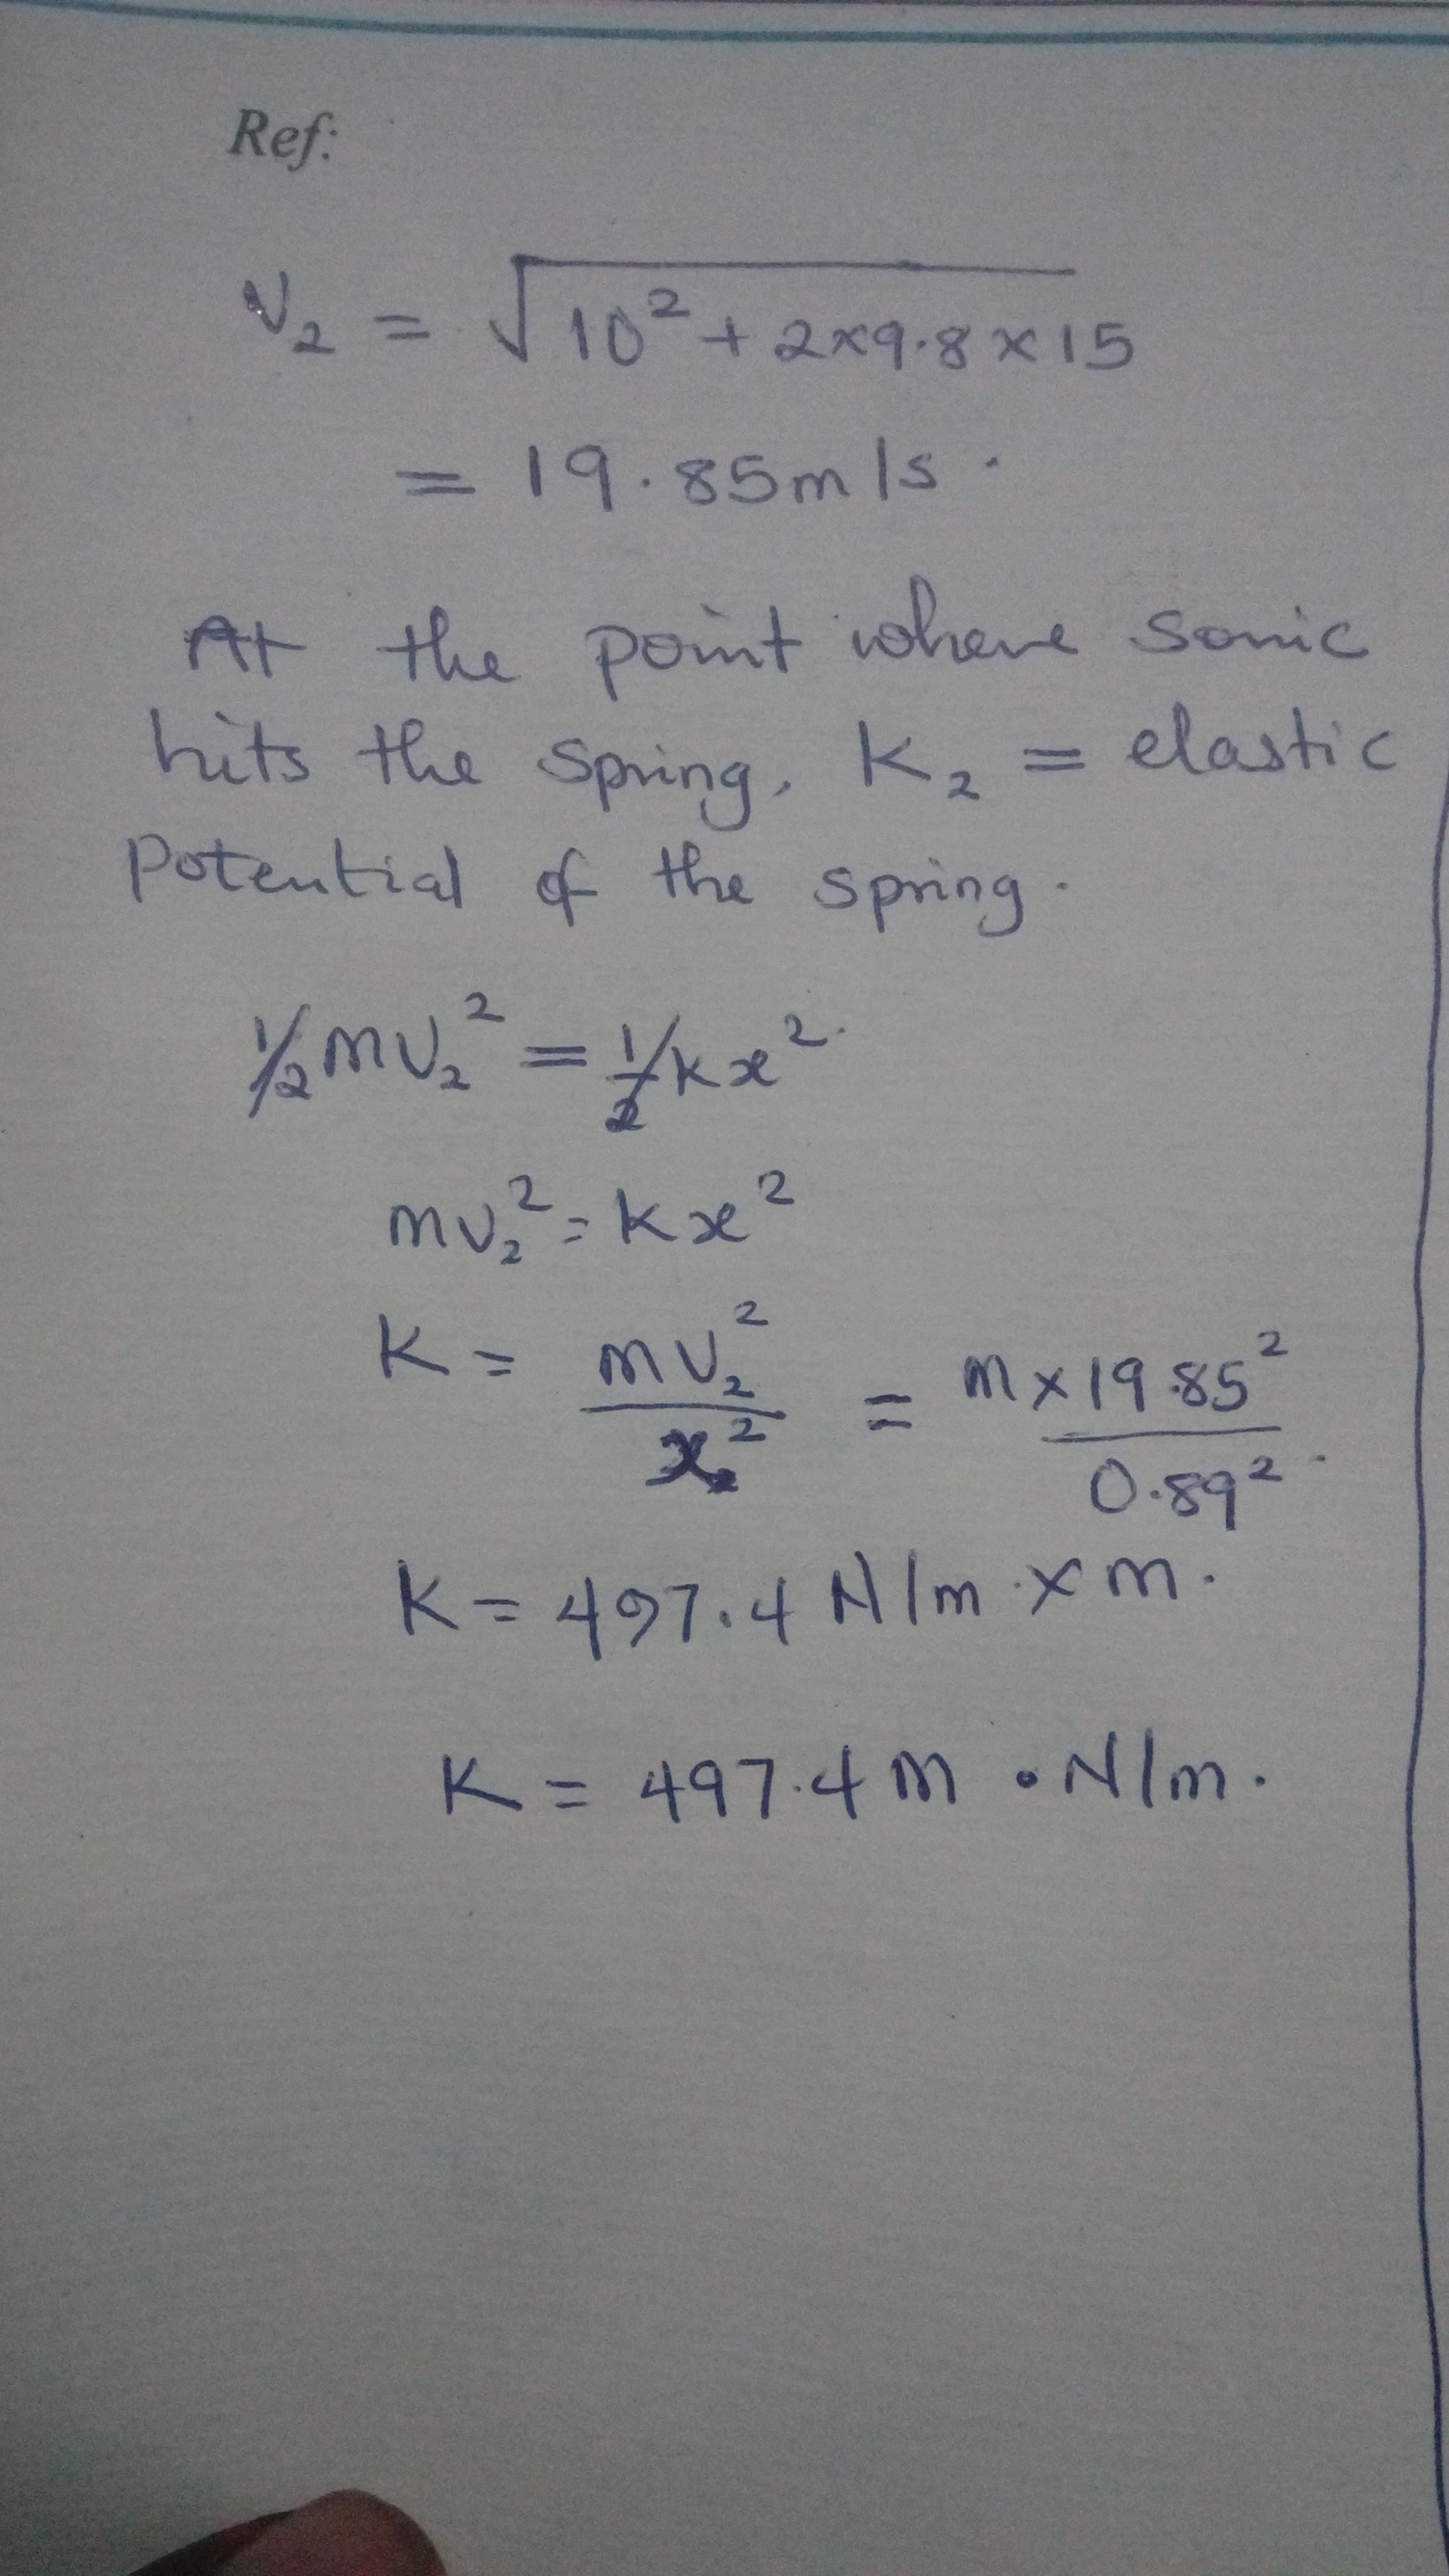 Ref:
V₂ = √10² + 2×9.8×15
= 19.85m/s.
At the point where sonic
hits the spring, K₂ = elastic
Potential of the spring.
1/2 mv₂² = 1/2 kx².
mv₂² = kx²
K = mv₂²/x₂² = m×19.85²/0.89².
K = 497.4 N/m × m.
K = 497.4 m • N/m.